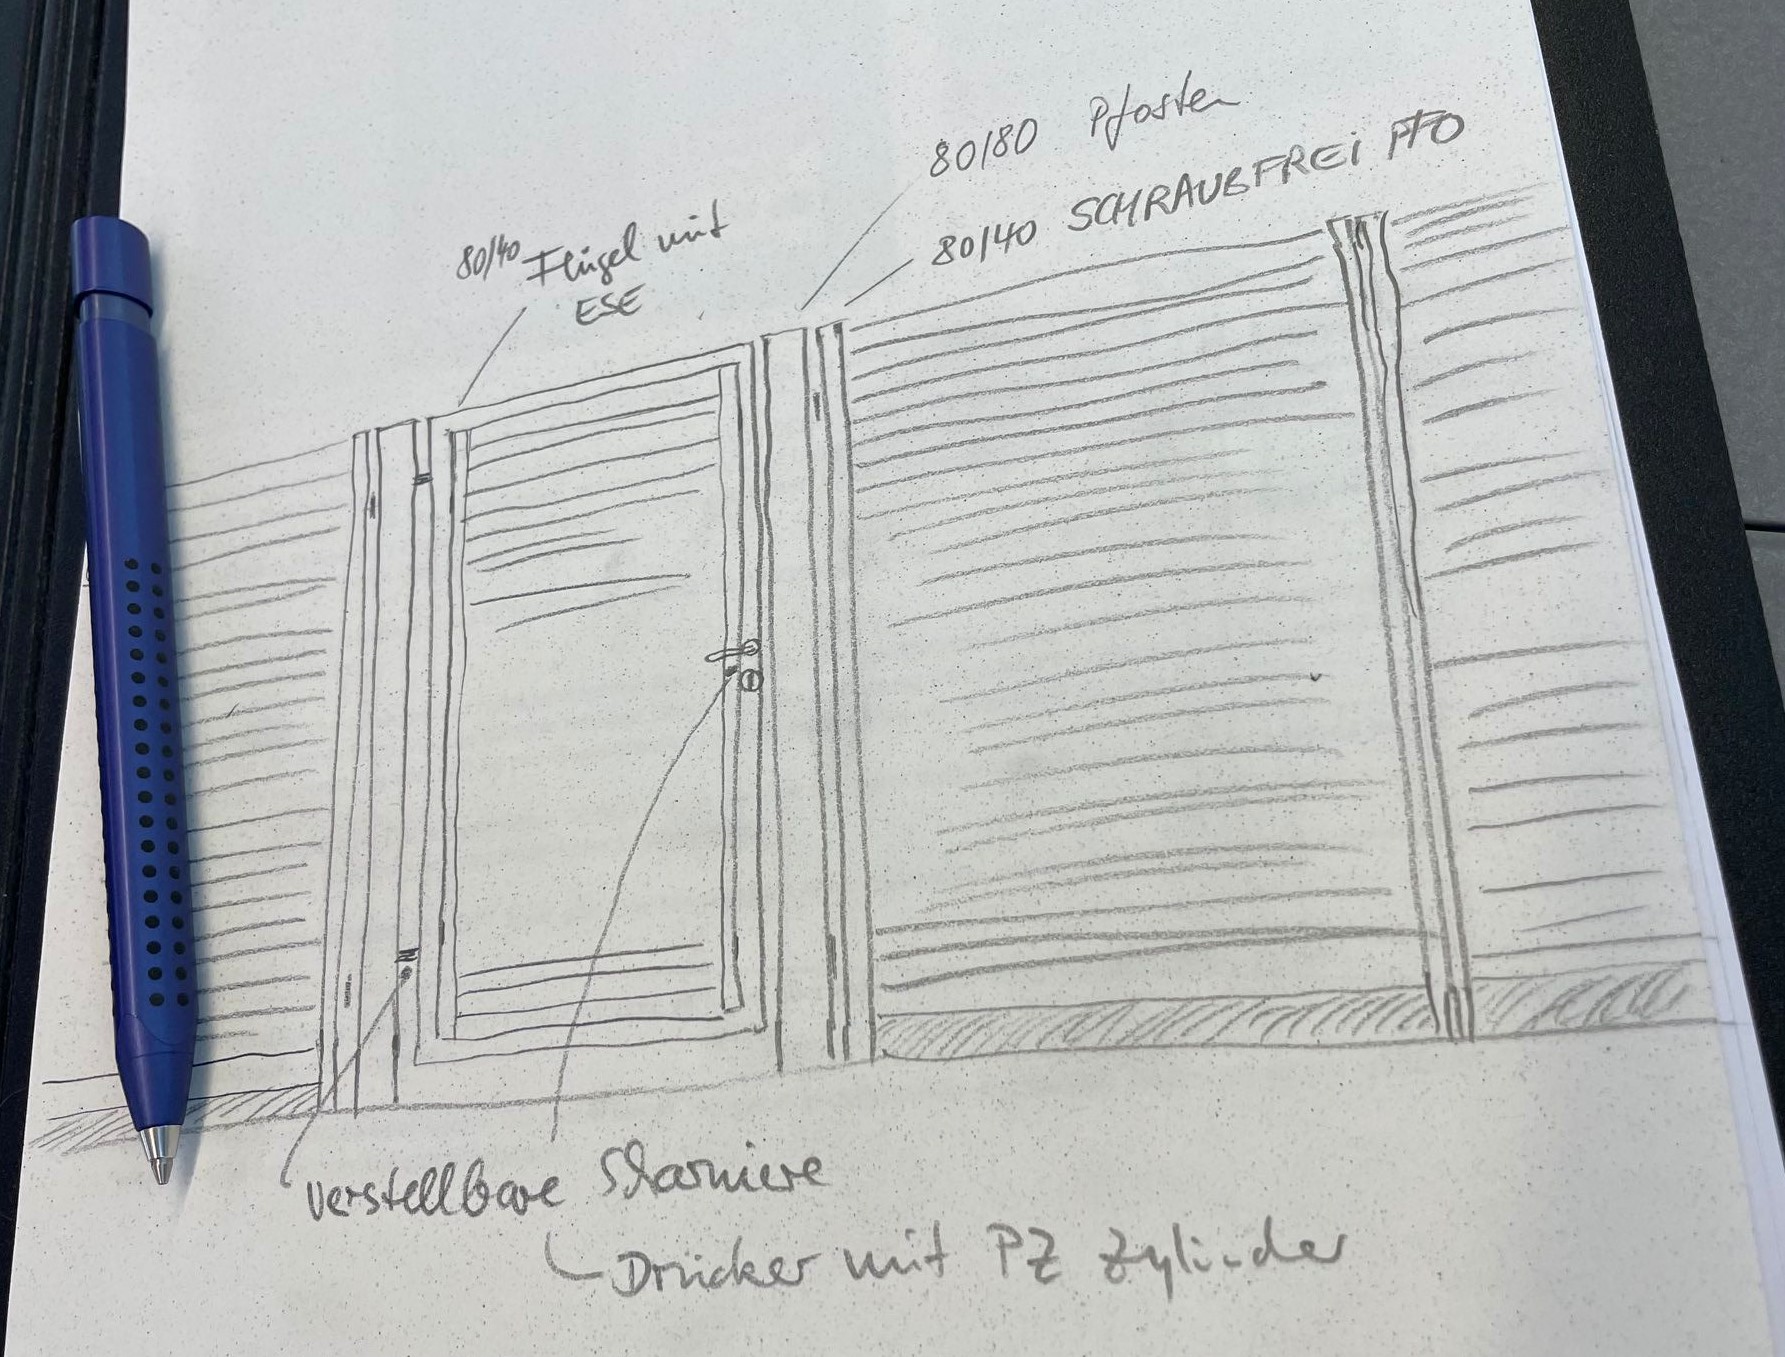 80/80 Pfosten
80/40 SCHRAUBFREI PFO
80/40 Flügel mit
ESE
verstellbare Scharniere
Drücker mit PZ Zylinder